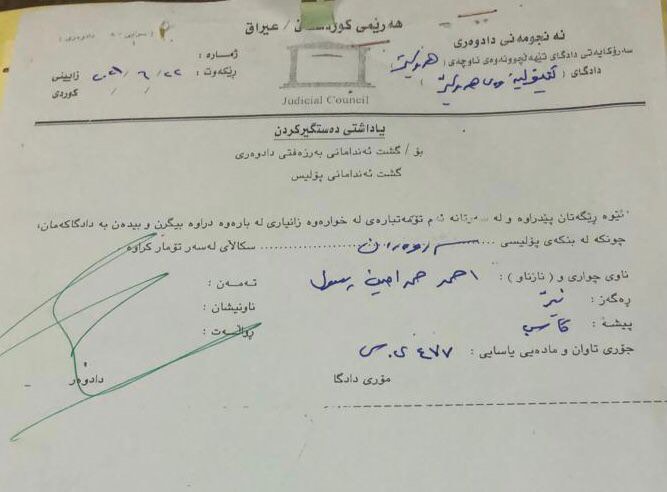 هەرێمی کوردستان / عیراق
ئەنجومەنی دادوەری
سەرۆکایەتی دادگای تێهەڵچوونەوەی ناوچەی (هەولێر)
دادگای (لێکۆڵینەوەی هەولێر)
ژمارە :
ڕێکەوت : ٢٢ / ٦ / زایینی
/ / کوردی
Judicial Council
یاداشتی دەستگیرکردن
بۆ / گشت ئەندامانی بەرزەفتی دادوەری
گشت ئەندامانی پۆلیس
ئێوە ڕێگەتان پێدراوە و لە ئەم تۆمەتبارەی لە خوارەوە زانیاری لە بارەوە دراوە بیگرن و بیدەن بە دادگاکەمان،
چونکە لە بنکەی پۆلیسی ........ سکاڵای لەسەر تۆمار کراوە .
ناوی چواری و ( نازناو ) : احمد حمدامین رسول
تەمەن :
ڕەگەز : نێر
ناونیشان :
پیشە : کاسب
ڕوالەت :
جۆری تاوان و مادەیی یاسایی : ٤٧٧ ی.س
مۆری دادگا
دادوەر